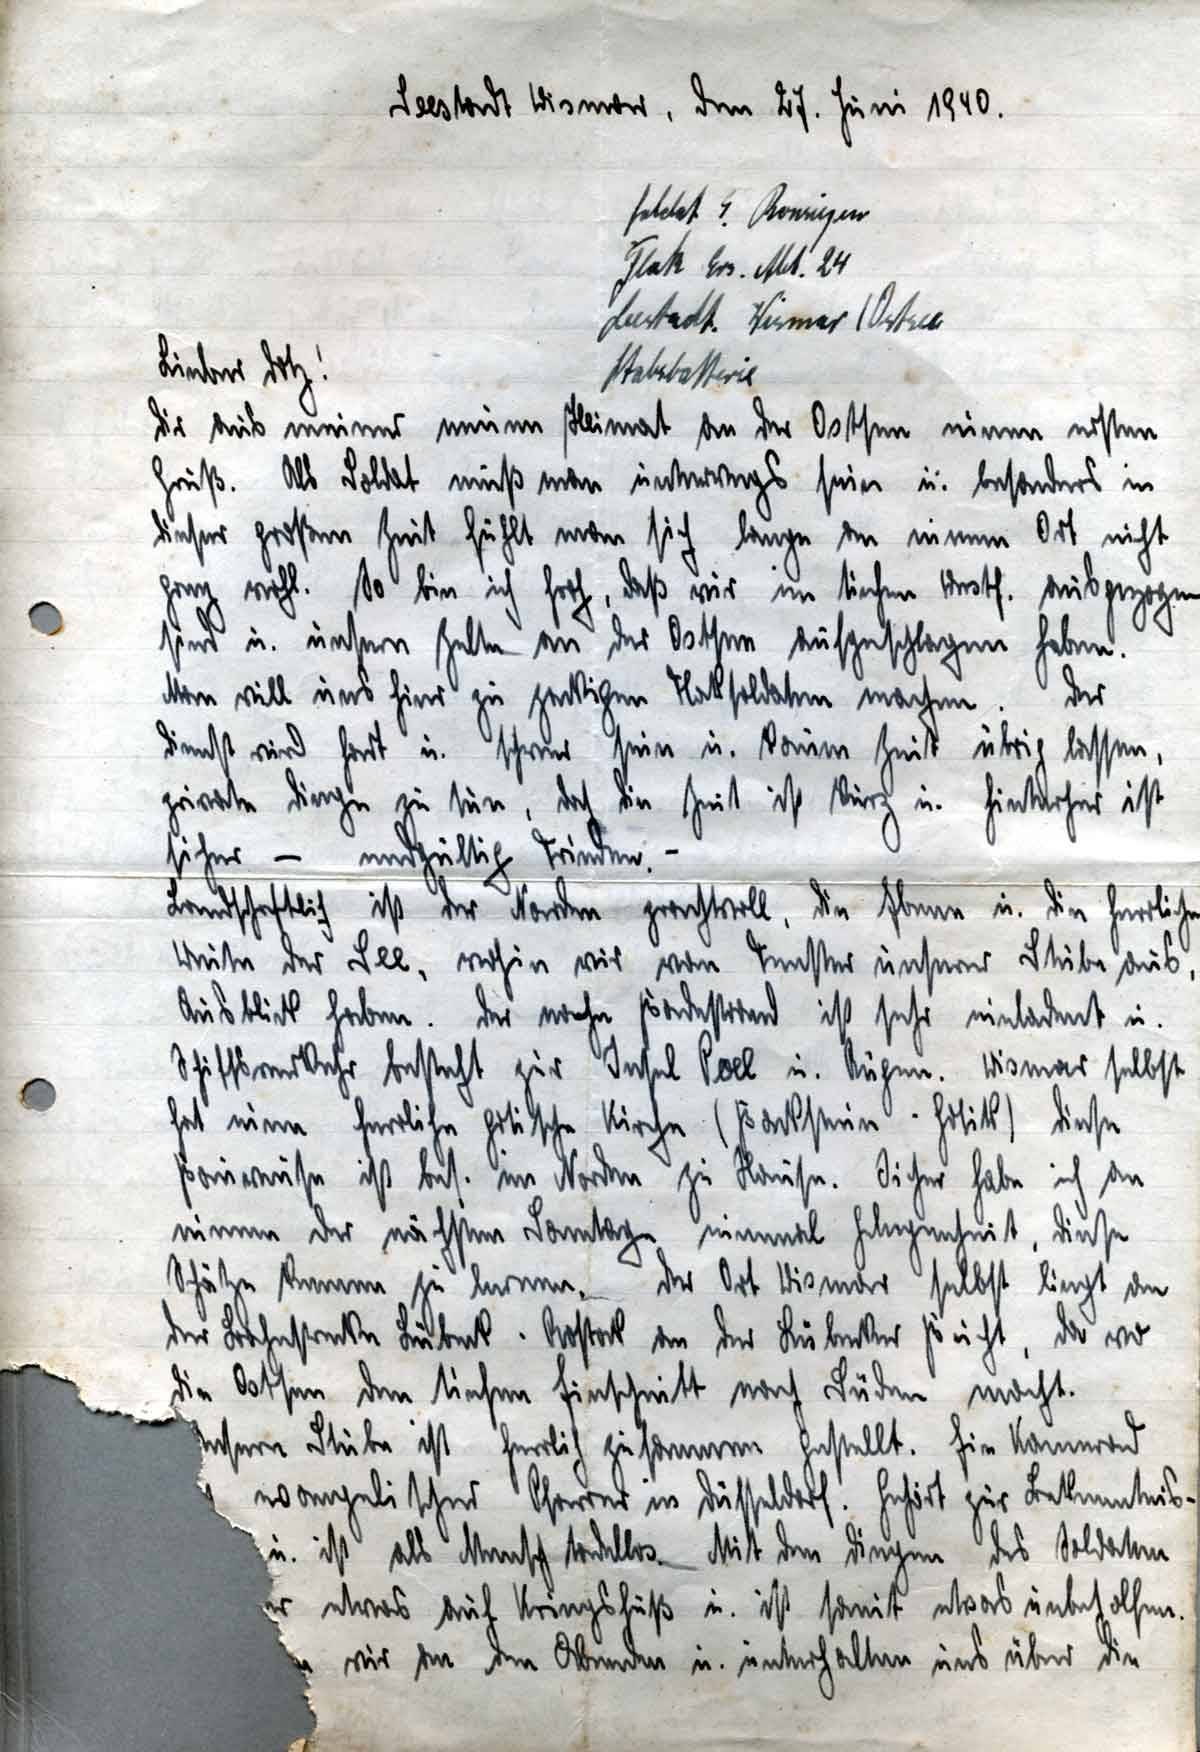 Seestadt Wismar, den 27. Juni 1940.
Soldat
Flak Ers. Abt. 24
Seestadt. Wismar / Ostsee
Stabsbatterie
Lieber
Dir aus meiner neuen Heimat an der Ostsee einen ersten
Gruß. Als Soldat muß man unterwegs sein u. besonders in
dieser großen Zeit fühlt man sich lange an einem Ort nicht
ganz wohl. So bin ich froh, daß wir im tiefen Westf. ausgezogen
sind u. unsere Zelte an der Ostsee aufgeschlagen haben.
Man will uns hier zu zackigen Flaksoldaten machen. Der
Dienst wird hart u. schwer sein u. kaum Zeit übrig lassen,
private Dinge zu tun, doch die Zeit ist kurz u. hinterher ist
sicher — endgültig Frieden. –
Landschaftlich ist der Norden prachtvoll, die Ebene u. die herrliche
Weite der See, wohin wir vom Fenster unserer Stube aus,
Ausblick haben. Der nahe Badestrand ist sehr einladent u.
Schiffsverkehr besteht zur Insel Poel u. Rügen. Wismar selbst
hat eine herrliche gotische Kirche (Backstein - Gotik) diese
Bauweise ist bes. im Norden zu Hause. Sicher habe ich an
einem der nächsten Sonntage einmal Gelegenheit, diese
Schätze kennen zu lernen. Der Ort Wismar selbst liegt an
der Bahnstrecke Lübeck - Rostock an der Lübecker Bucht, da wo
die Ostsee den tiefen Einschnitt nach Süden macht.
Unsere Stube ist herrlich zusammen gestellt. Ein Kamerad
evangelischer Pfarrer in Düsseldorf. Gehört zur Bekenntnis-
u. ist als Mensch tadellos. Mit den Dingen des Soldaten
er etwas auf Kriegsfuß u. ist somit etwas unbeholfen.
wir an den Abenden u. unterhalten uns über die